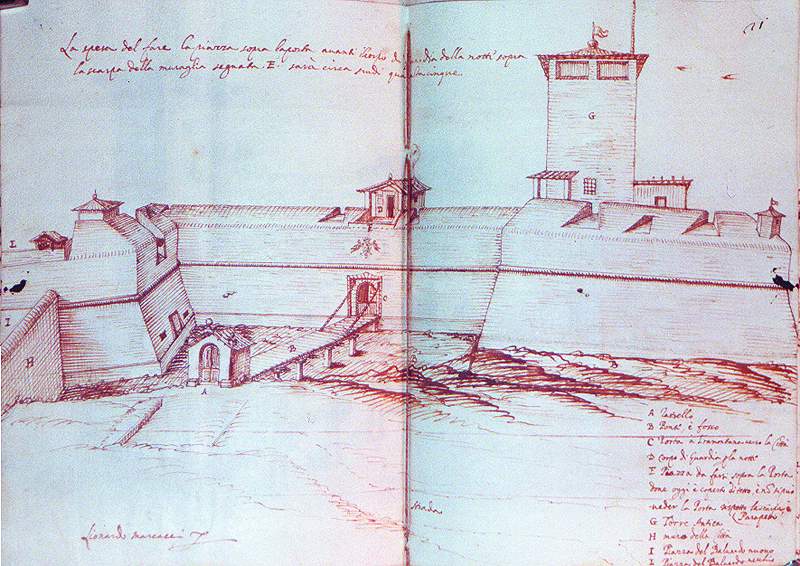 21
La spesa del fare la piazza sopra la porta avanti il corpo di guardia della notte sopra
la scarpa della muraglia segnata E. sarà circa scudi
G
D
E
C
L
I
I
H
B
A
B
A Rastrello
B Ponte è fosso
C Porta a Tramontana verso la Città
D Corpo di Guardia p la notte
E Piazza da farsi sopra la Porta
doue oggi è coperto di tetto, è nō si può
ueder la Porta rispetto la
Parapetti
G Torre Antica
H muro della Città
I Piazza del Baluardo nuouo
L Piazza del Baluardo
strada
Lionardo marcacci